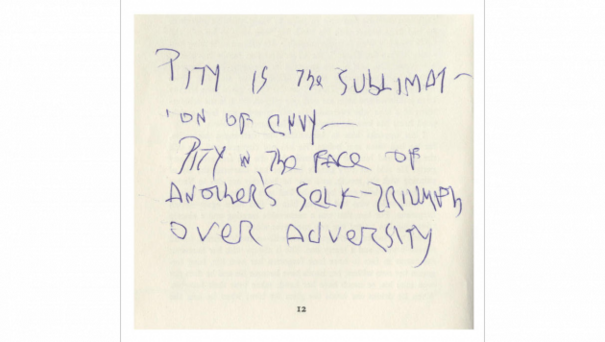 PITY IS The SUBLIMAT-
ION OF ENVY—
PITY IN The FACE OF
ANOTHER'S SELF-TRIUMPh
OVER ADVERSITY
12